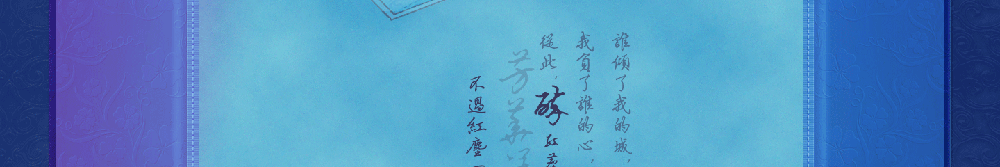 誰傾了我的城，
我負了誰的心，
從此，醉紅
芳華
不過紅塵一